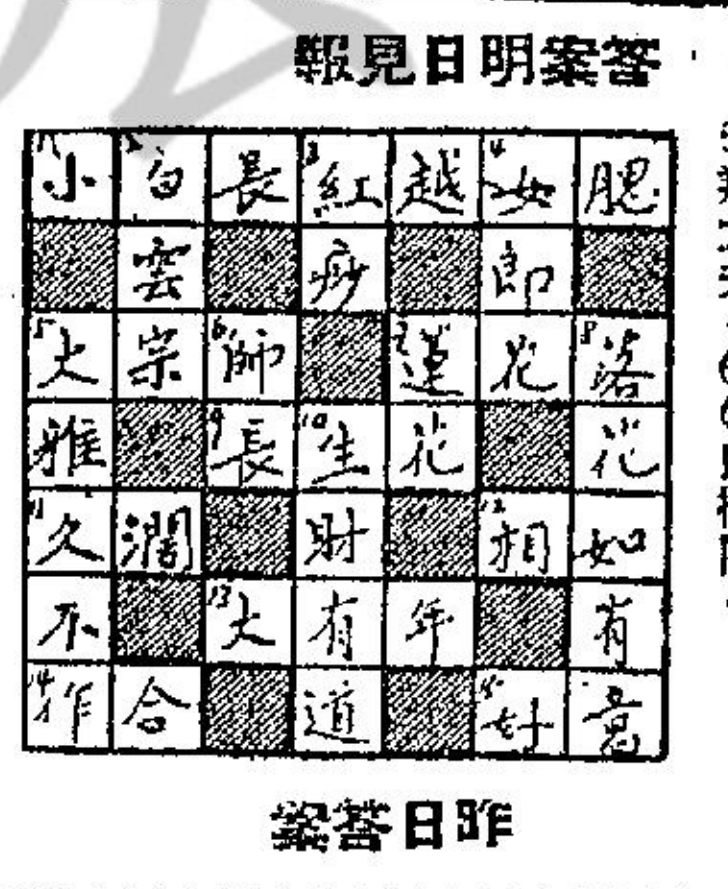 答案明日見報
1小 2白 長 3紅 越 4女 腮
雲 痧 郎
5大 宗 6師 7蓮 花 8落
雅 9長 10生 花 花
11久 濶 財 12相 如
不 13大 有 年 有
14作 合 道 15好 意
昨日答案